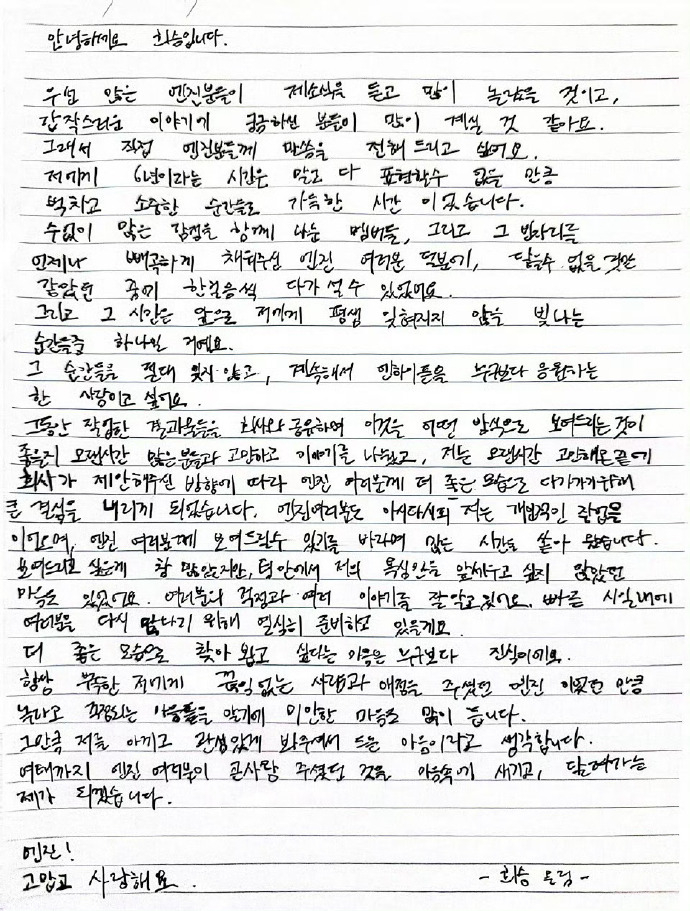 안녕하세요 희승입니다.
우선 많은 엔진분들이 제소식을 듣고 많이 놀랐을 것이고,
갑작스러운 이야기에 궁금하신 분들이 많이 계실 것 같아요.
그래서 직접 엔진분들께 말씀을 전해 드리고 싶어요.
저에게 6년이라는 시간은 말로 다 표현할수 없을 만큼
벅차고 소중한 순간들로 가득한 시간 이었습니다.
수없이 많은 감정을 함께 나눈 멤버들, 그리고 그 빈자리를
언제나 빼곡하게 채워주신 엔진 여러분 덕분에, 닿을수 없을 것만
같았던 꿈에 한걸음씩 다가 설 수 있었어요.
그리고 그 시간은 앞으로 저에게 평생 잊혀지지 않을 빛나는
순간들중 하나일 거예요.
그 순간들을 절대 잊지 않고, 계속해서 엔하이픈을 누구보다 응원하는
한 사람이고 싶어요.
그동안 작업한 결과물들을 회사와 공유하며 이것을 어떤 방식으로 보여드리는것이
좋을지 오랜시간 많은분들과 고민하고 이야기를 나눴고, 저는 오랜시간 고민해온끝에
회사가 제안해주신 방향에 따라 엔진 여러분께 더 좋은 모습으로 다가가기위해
큰 결심을 내리게 되었습니다. 엔진여러분도 아시다시피 저는 개인적인 작업을
이어오며, 엔진 여러분께 보여드릴수 있기를 바라며 많은 시간을 쏟아 왔습니다.
보여드리고 싶은게 참 많았지만, 팀 안에서 저의 욕심만을 앞세우고 싶지 않았던
마음도 있었어요. 여러분의 걱정과 여러 이야기를 잘 알고 있어요. 빠른 시일내에
여러분을 다시 만나기 위해 열심히 준비하고 있을게요.
더 좋은 모습으로 찾아 뵙고 싶다는 마음은 누구보다 진심이에요.
항상 부족한 저에게 끊임없는 사랑과 애정을 주셨던 엔진 이었던 만큼
놀라고 걱정되는 마음들을 알기에 미안한 마음도 많이 듭니다.
그만큼 저를 아끼고 관심있게 봐주셔서 드는 마음이라고 생각합니다.
여태까지 엔진 여러분이 큰사랑 주셨던 것을 마음속에 새기고, 달려가는
제가 되겠습니다.
엔진!
고맙고 사랑해요.
- 희승 드림 -